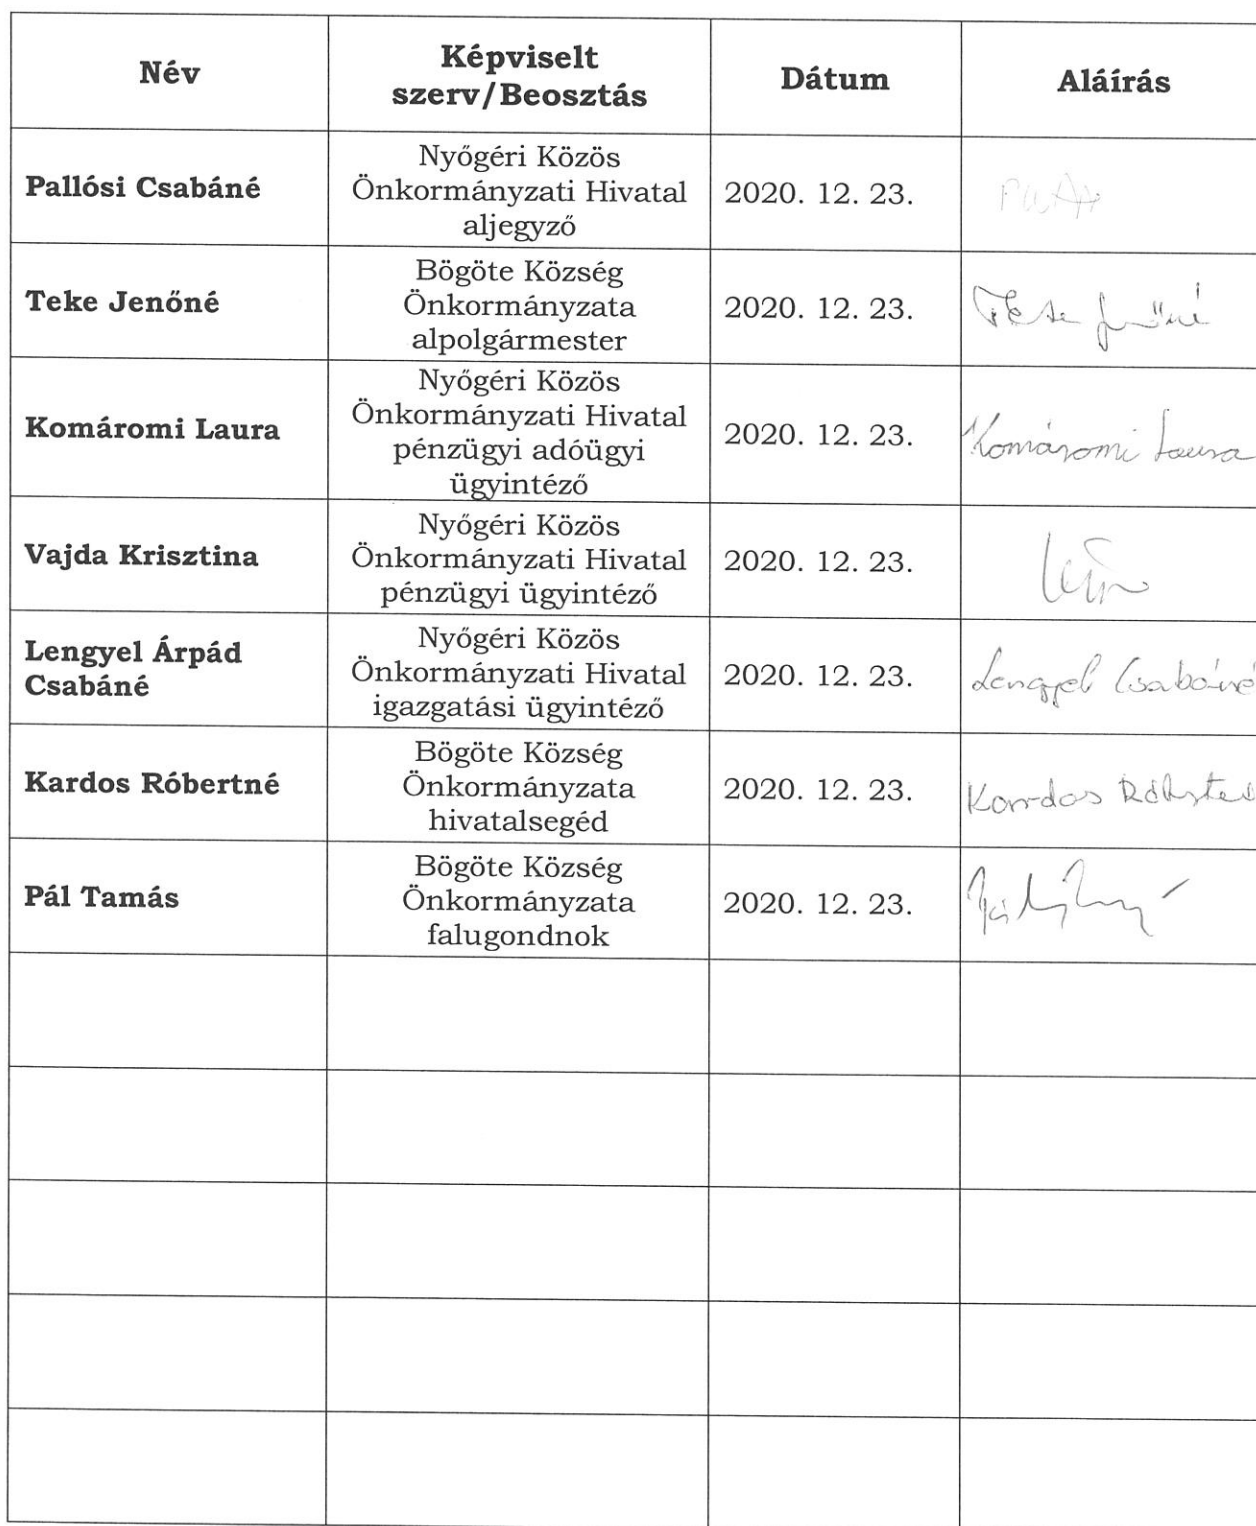 Név
Képviselt
szerv/Beosztás
Dátum
Aláírás
Pallósi Csabáné
Nyőgéri Közös
Önkormányzati Hivatal
aljegyző
2020. 12. 23.
Teke Jenőné
Bögöte Község
Önkormányzata
alpolgármester
2020. 12. 23.
Teke Jenőné
Komáromi Laura
Nyőgéri Közös
Önkormányzati Hivatal
pénzügyi adóügyi
ügyintéző
2020. 12. 23.
Komáromi Laura
Vajda Krisztina
Nyőgéri Közös
Önkormányzati Hivatal
pénzügyi ügyintéző
2020. 12. 23.
Lengyel Árpád
Csabáné
Nyőgéri Közös
Önkormányzati Hivatal
igazgatási ügyintéző
2020. 12. 23.
Lengyel Csabáné
Kardos Róbertné
Bögöte Község
Önkormányzata
hivatalsegéd
2020. 12. 23.
Kardos
Pál Tamás
Bögöte Község
Önkormányzata
falugondnok
2020. 12. 23.